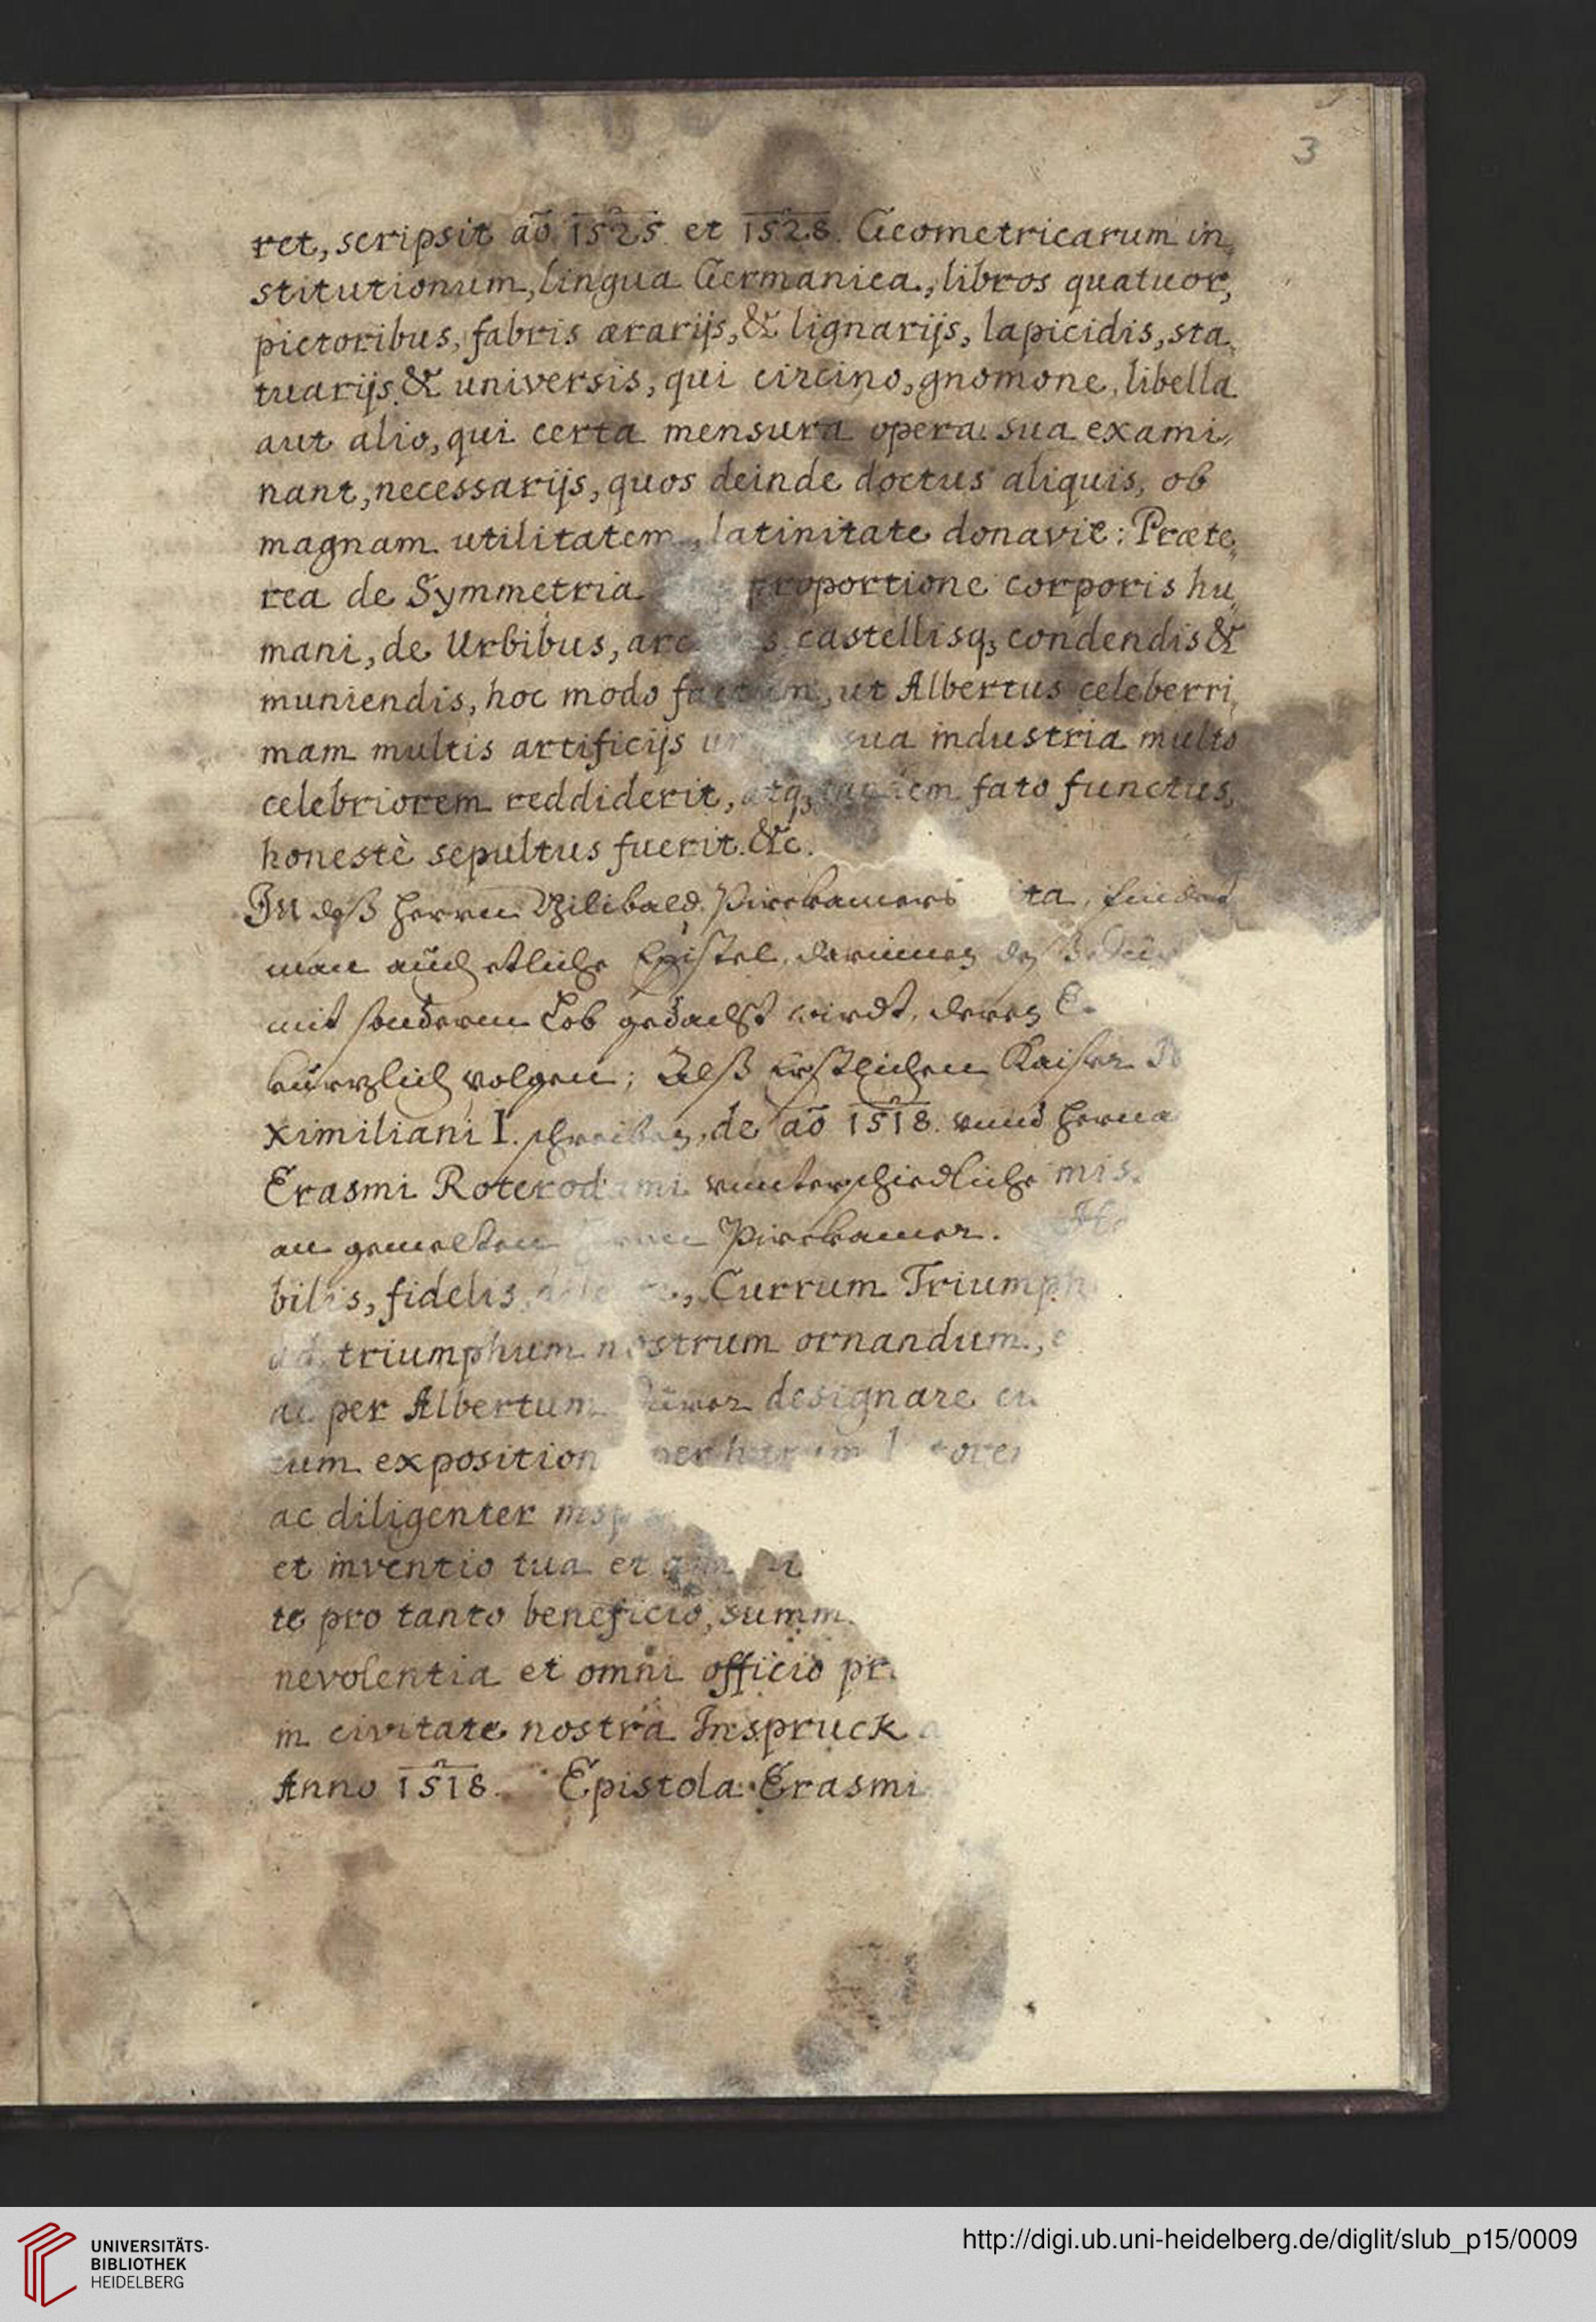 3
ret, scripsit aõ 1525 et 1528. Geometricarum in,,
stitutionum, lingua Germanica, libros quatuor,
pictoribus, fabris ærarijs, & lignarijs, lapicidis, sta,,
tuarijs & universis, qui circino, gnomone, libella
aut alio, qui certa mensura opera sua exami,,
nant, necessarijs, quos deinde doctus aliquis, ob
magnam utilitatem, latinitate donavit: Præte,,
rea de Symmetria proportione corporis hu,,
mani, de Urbibus, castellisq3 condendis &
muniendis, hoc modo factum, ut Albertus celeberri,,
mam multis artificijs sua industria multo
celebriorem reddiderit, atq3 tandem fato functus,
honestè sepultus fuerit. &c.
In deß Herrn Bilibald. Pirckamers findet
man auch etliche Epistel, darinnen deß
mit sonderm Lob gedacht wirdt, deren
kürtzlich volgen; Alß Erstlichen Kaiser
ximiliani I. schreiben, de aõ 1518. vnnd Herna
Erasmi Roterodami vnnterschiedliche mis
an gemelten Herrn Pirckamer.
bilis, fidelis, Currum Triumph
ad triumphum nostrum ornandum,
ac per Albertum Dürer designare
tum exposition
ac diligenter
et inventio tua et
te pro tanto beneficio, summ
nevolentia et omni officio pr
in civitate nostra Inspruck
Anno 1518. Epistola Erasmi
UNIVERSITÄTS-
BIBLIOTHEK
HEIDELBERG
http://digi.ub.uni-heidelberg.de/diglit/slub_p15/0009